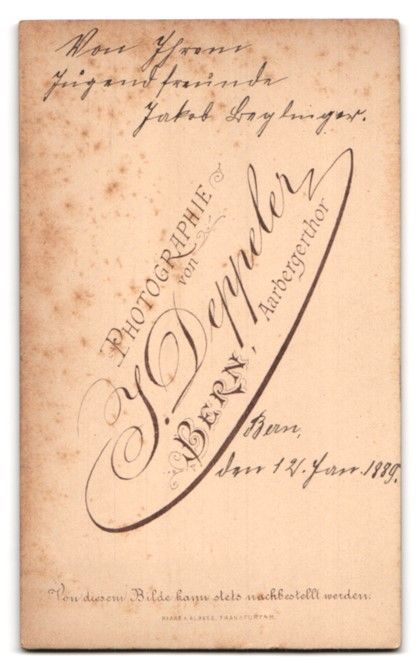 Von Ihrem
Jugendfreunde
Jakob Beglinger.
PHOTOGRAPHIE
von
J. Deppeler
BERN, Aarbergerthor
Bern,
den 12. Jan. 1889.
Von diesem Bilde kann stets nachbestellt werden.
FRANKFURT A/M.